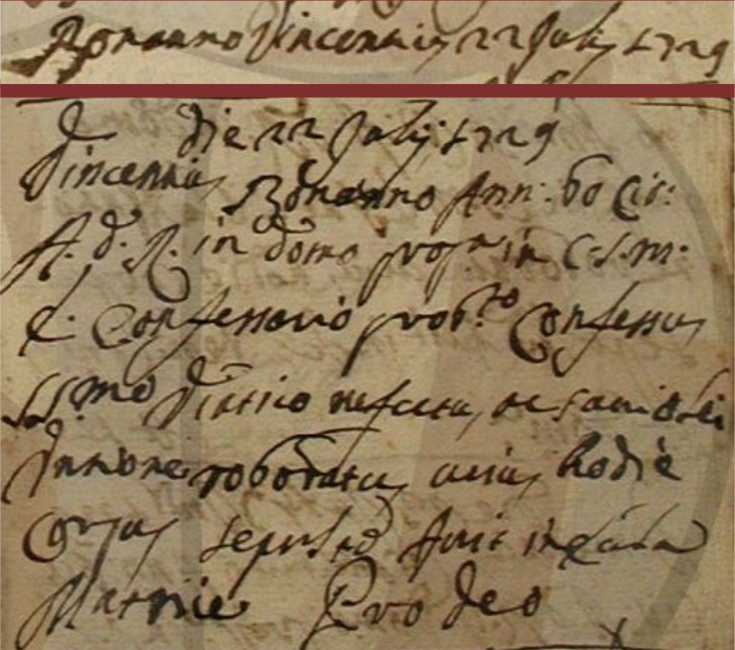 Bonanno Vincentius 22 Julij 1729
Die 22 Julij 1729
Vincentius Bonanno Ann: 60 Cir:
A. d. R. in domo propria in C.S.M.
E. Confessario prob.to Confessus
SS.mo Viatico refectus, ac Sancti Olei
Unctione roboratus cuius hodie
Corpus sepultum fuit in
Matrice Pro deo